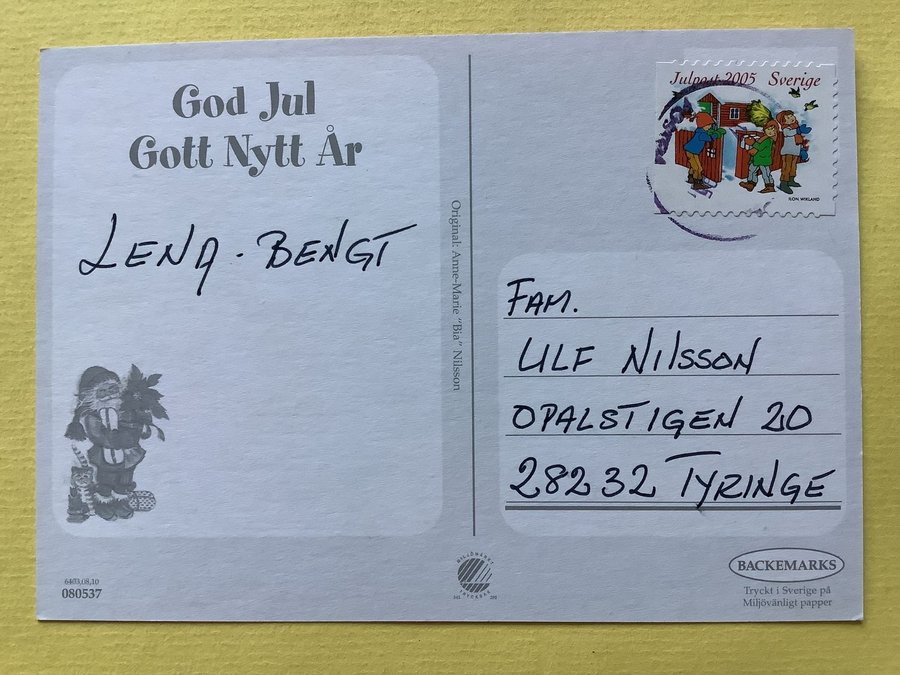 God Jul
Gott Nytt År
LENA - BENGT
6403,08,10
080537
Original: Anne-Marie "Bia" Nilsson
Julpost 2005 Sverige
ILON WIKLAND
FAM.
ULF NILSSON
OPALSTIGEN 20
28232 TYRINGE
MILJÖMÄRKT
TRYCKSAK
BACKEMARKS
Tryckt i Sverige på
Miljövänligt papper